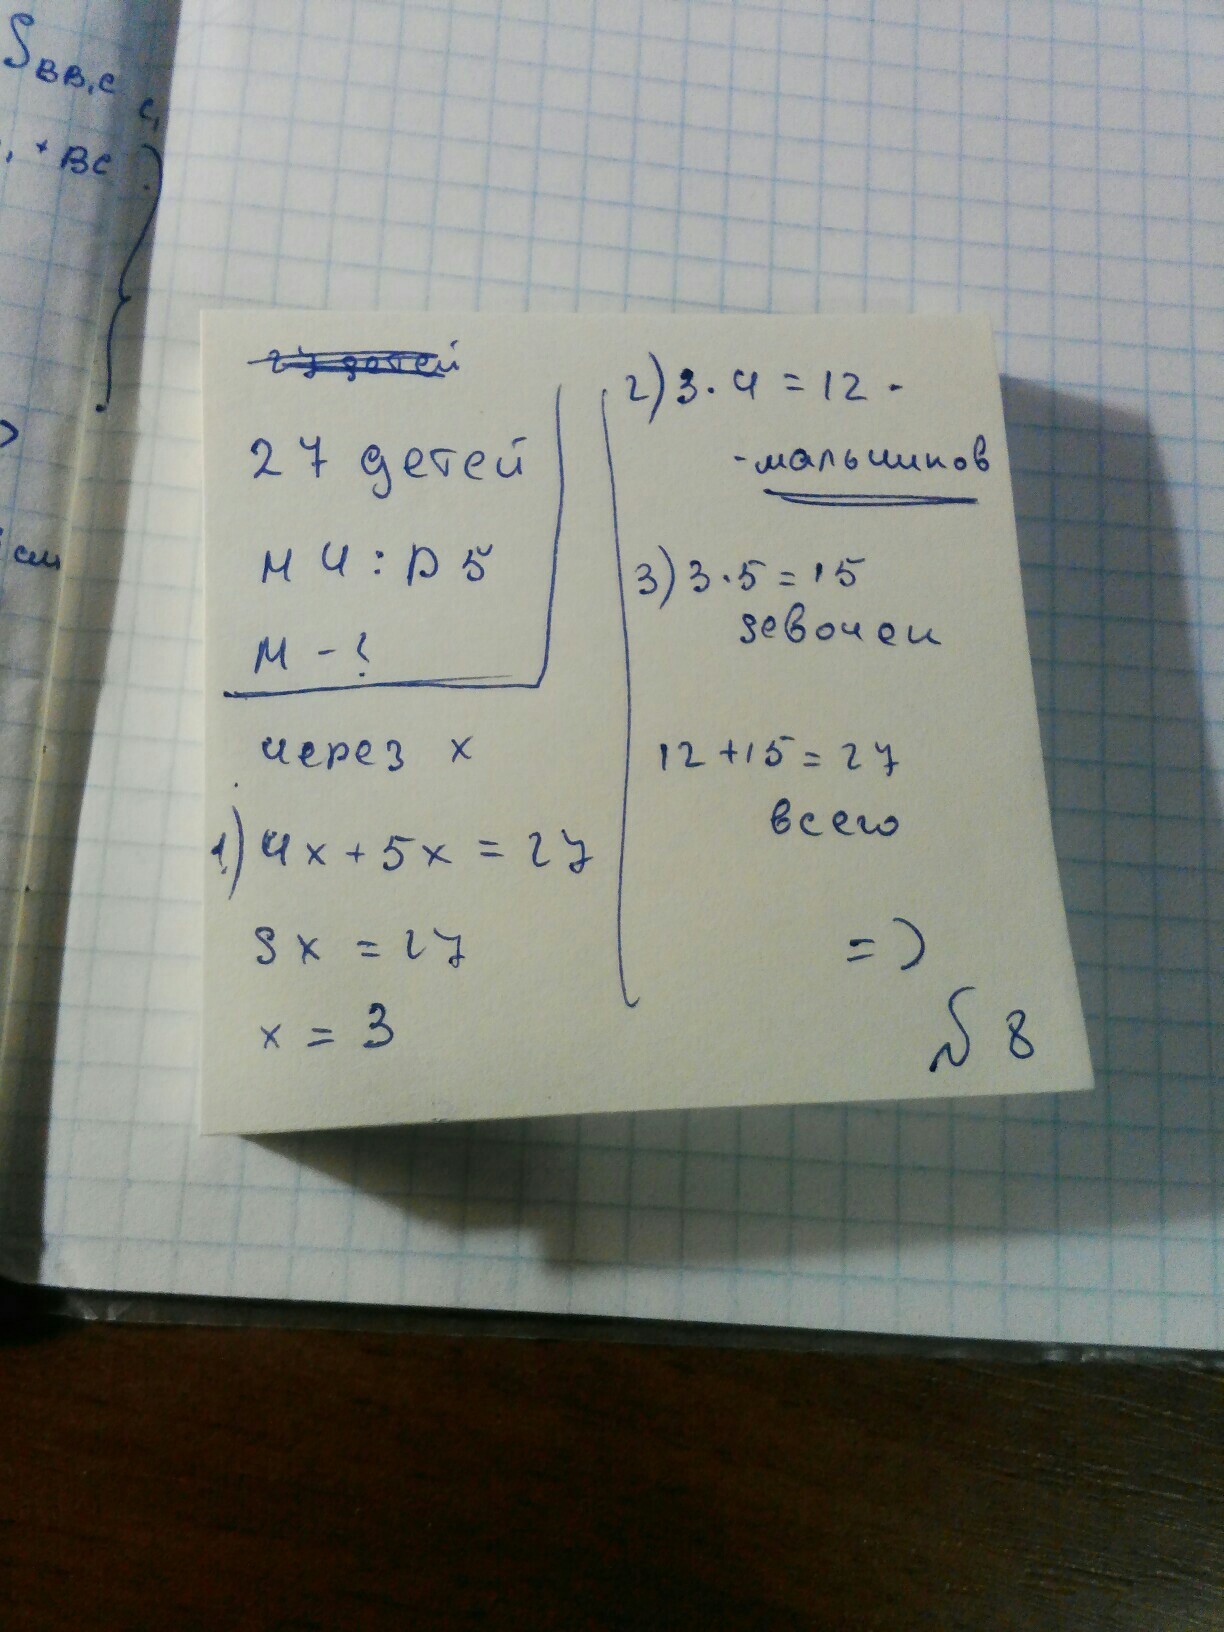 S BB₁C
C₁
+ BC
см
27 детей
27 детей
М 4 : D 5
М - ?
через х
1) 4х + 5х = 27
9х = 27
х = 3
2) 3 · 4 = 12 -
- мальчиков
3) 3 · 5 = 15
девочек
12 + 15 = 27
всего
=)
№ 8